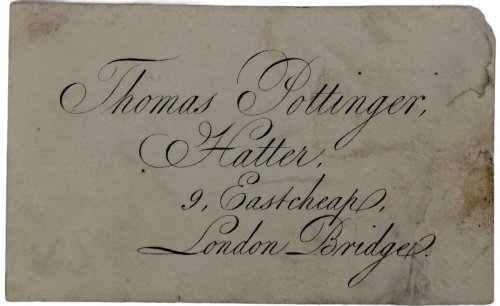 Thomas Pottinger,
Hatter,
9, Eastcheap,
London Bridge.